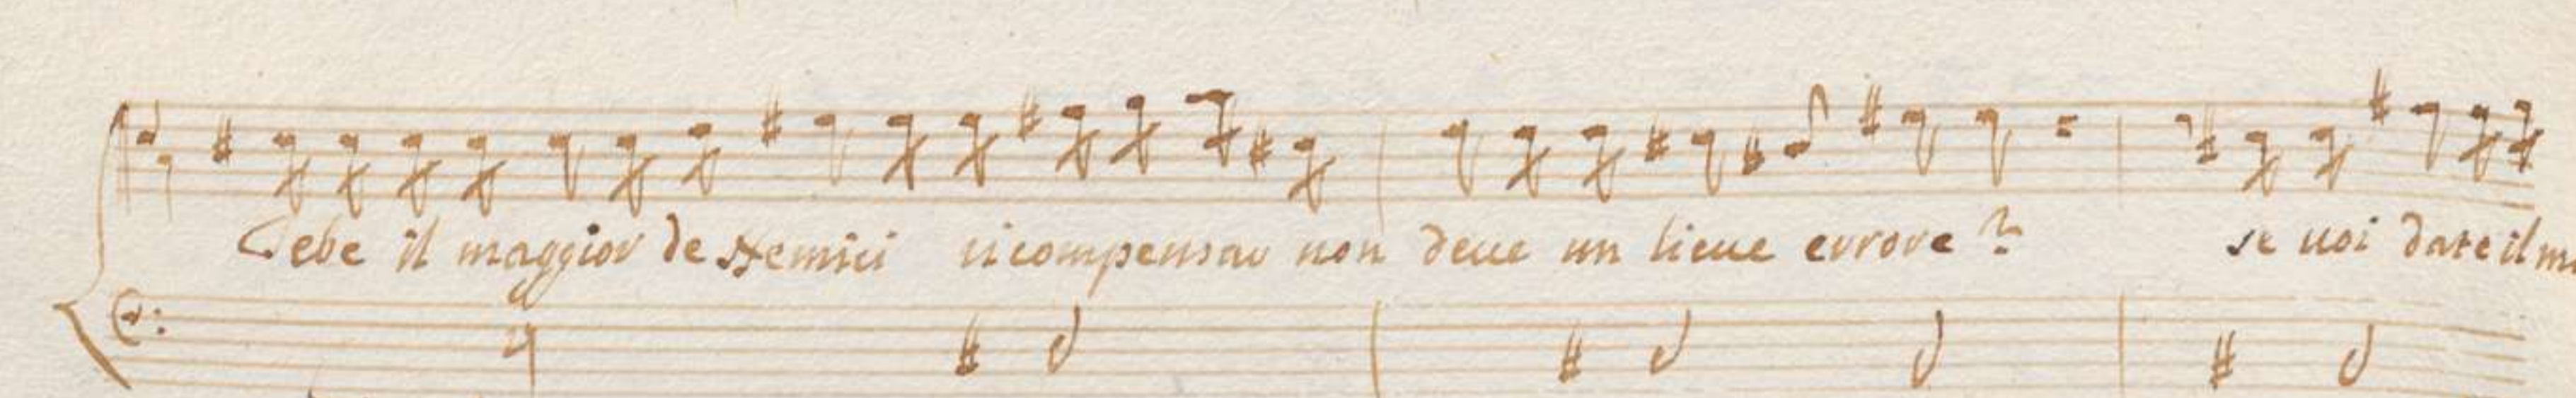 Debe il maggior de Nemici ricompensar non deue un lieue errore? se uoi date il